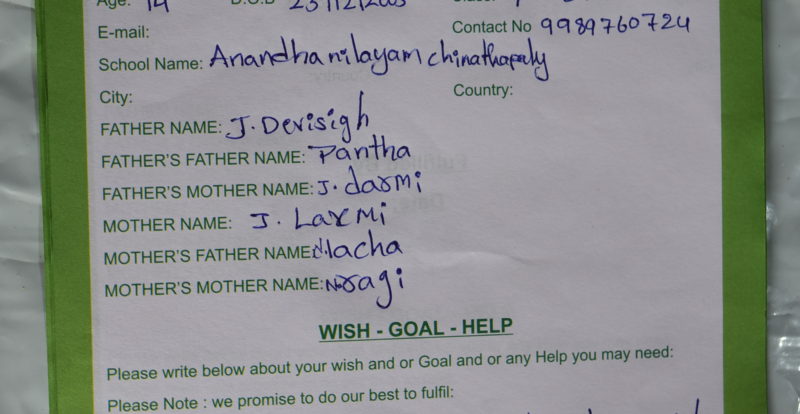 Age: 14 D.O.B 23/12/2003
E-mail: Contact No 9989760724
School Name: Anandhanilayam chinathapally
City: Country:
FATHER NAME: J. Devisigh
FATHER'S FATHER NAME: Pantha
FATHER'S MOTHER NAME: J. darmi
MOTHER NAME: J. Laxmi
MOTHER'S FATHER NAME: N.lacha
MOTHER'S MOTHER NAME: N.ragi
WISH - GOAL - HELP
Please write below about your wish and or Goal and or any Help you may need:
Please Note : we promise to do our best to fulfil: